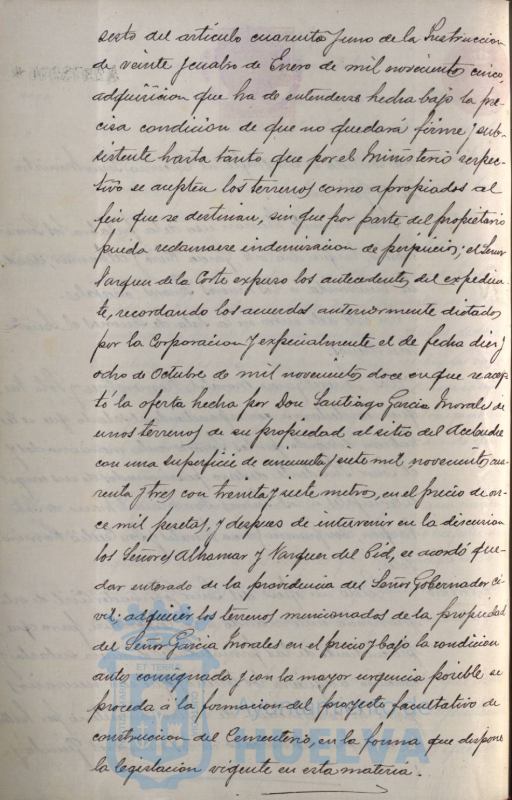 sexto del artículo cuarenta y uno de la Instruccion
de veinte y cuatro de Enero de mil novecientos cinco,
adquisicion que ha de entenderse hecha bajo la pre-
cisa condicion de que no quedará firme y sub-
sistente hasta tanto que por el Ministerio respec-
tivo se aupten los terrenos como apropiados al
fin que se destinan, sin que por parte del propietario
pueda reclamarse indemnizacion de perjuicios; el Señor
Vazquez de la Corte expuso los antecedentes del expedien-
te, recordando los acuerdos anteriormente dictados
por la Corporacion y especialmente el de fecha diez y
ocho de Octubre de mil novecientos doce en que se acep-
tó la oferta hecha por Don Santiago Garcia Morales de
unos terrenos de su propiedad al sitio del
con una superficie de cincuenta y siete mil novecientos cua-
renta y tres con treinta y siete metros, en el precio de on-
ce mil pesetas, y despues de intervenir en la discusion
los Señores Alhamar y Vazquez del Cid, se acordó que-
dar enterado de la providencia del Señor Gobernador ci-
vil; adquirir los terrenos mencionados de la propiedad
del Señor Garcia Morales en el precio y bajo la condicion
antes consignada y con la mayor urgencia posible se
proceda á la formacion del proyecto facultativo de
construccion del Cementerio, en la forma que dispone
la legislacion vigente en esta materia.
ET TERRA
Ayuntamiento de
HUELVA